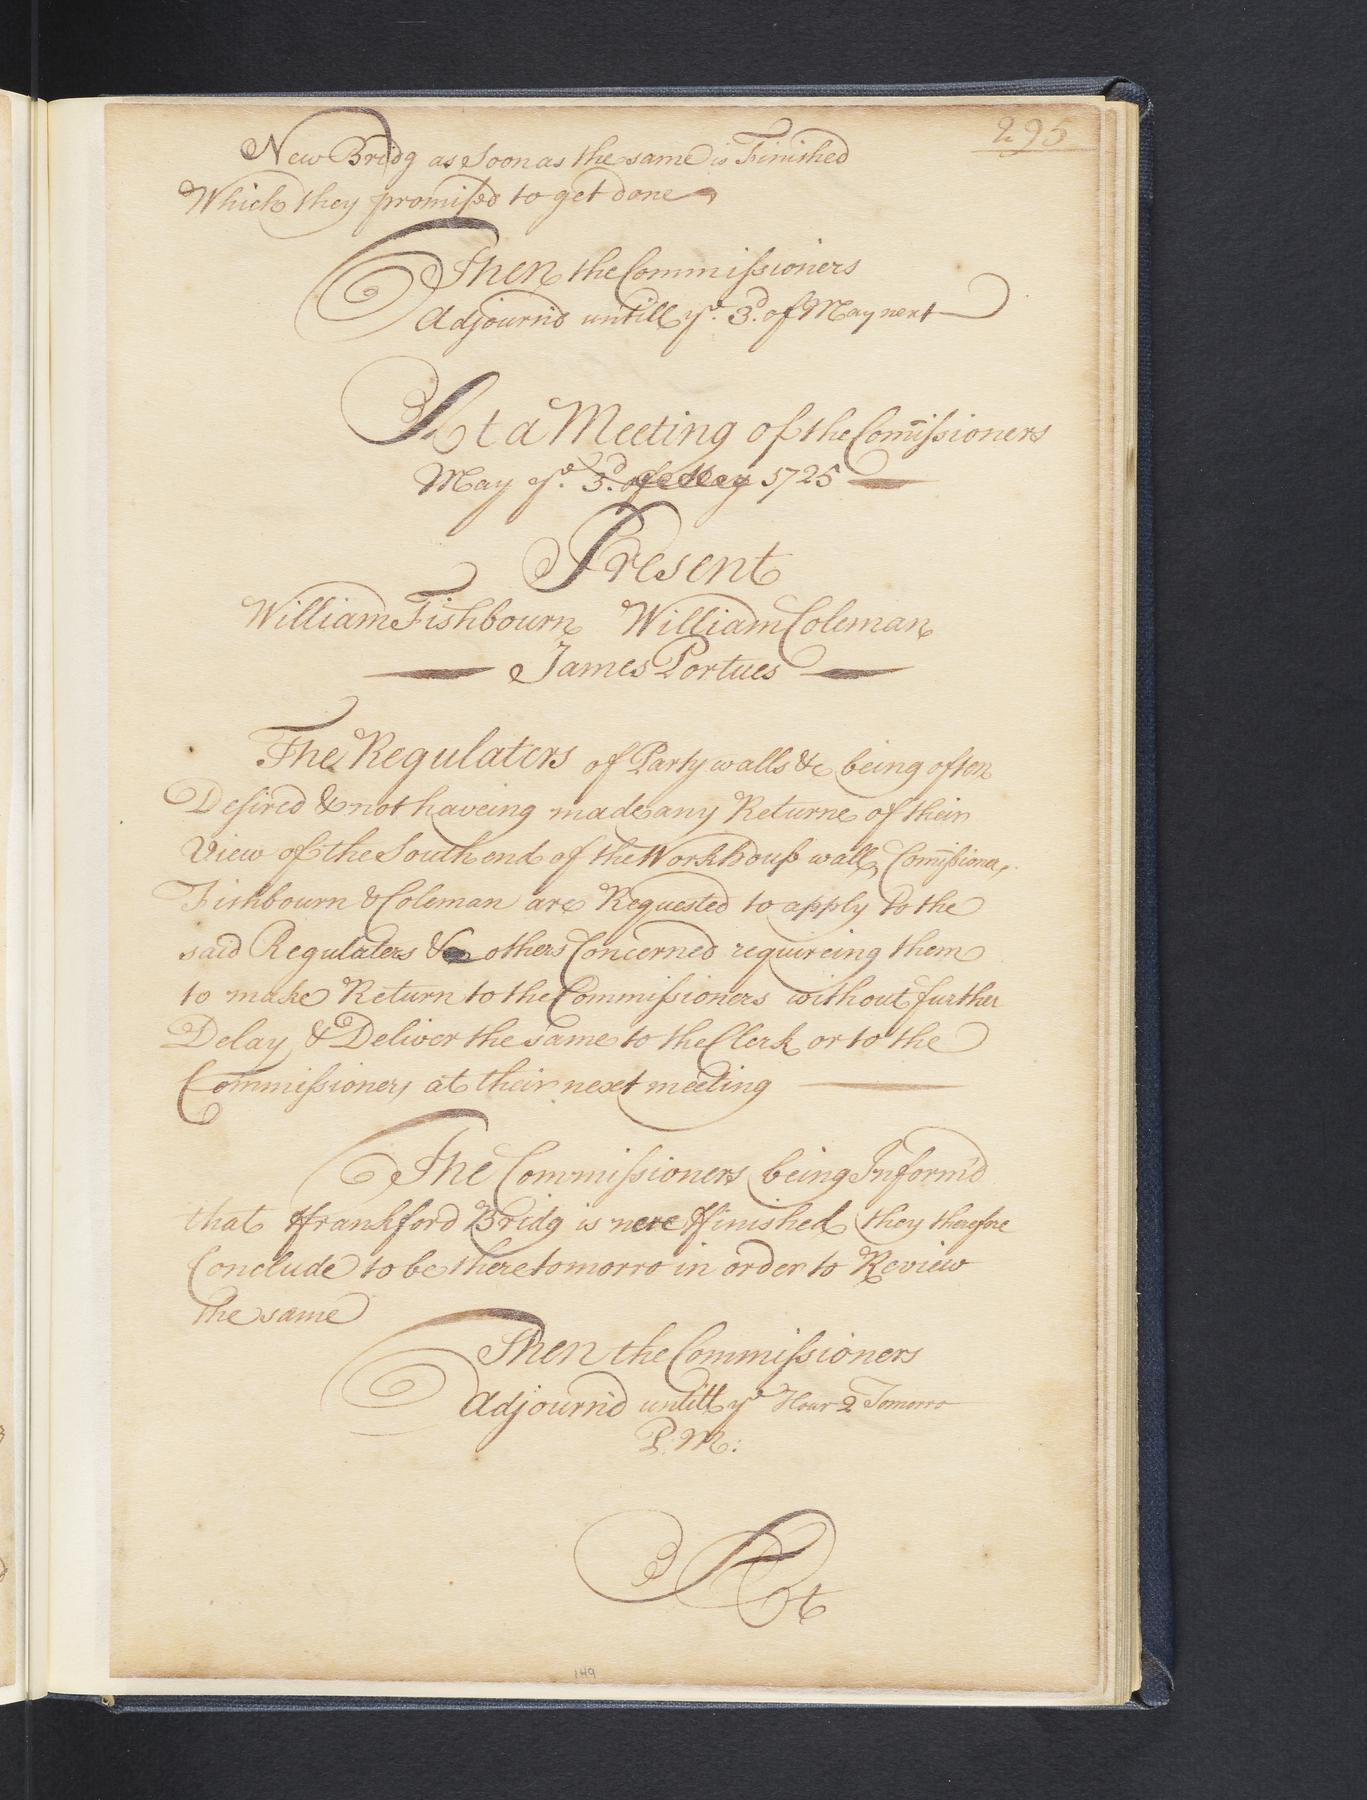 295
New Bridg as Soon as the same is Finished
Which they promissd to get done
Then the Commissioners
Adjourn'd untill ye. 3d. of May next
At a Meeting of the Comissioners
May ye. 3d. 1725
Present
William Fishbourn William Coleman
James Portues
The Regulators of Party walls &c being often
Desired & not haveing made any Returne of their
View of the South end of the Workhouss wall, Comissioners
Fishbourn & Coleman are Requested to apply to the
said Regulaters & others Concerned requireing them
to make Return to the Commissioners without further
Delay & Deliver the same to the Clerk or to the
Commissioners at their next meeting
The Commissioners being Inform'd
that ffrankford Bridg is nere ffinished they therefore
Conclude to be there tomorro in order to Review
the same
Then the Commissioners
Adjourn'd untill ye Hour 2 Tomorro
P: M:
At
149